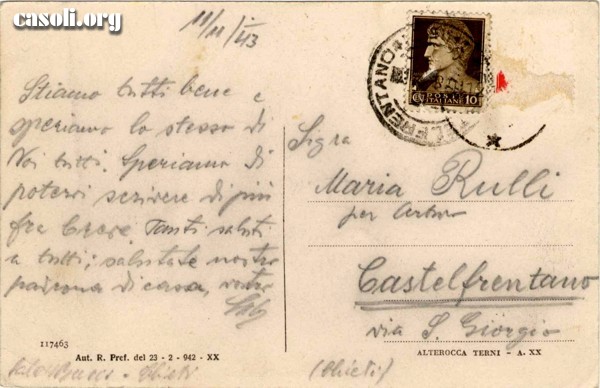 casoli.org
11/11/43
Stiamo tutti bene e
speriamo lo stesso di
Voi tutti. Speriamo di
potervi scrivere di più
fra breve. Tanti saluti
a tutti; salutate nostra
padrona di casa, vostro
POSTE
ITALIANE 10
Sigra
Maria Rulli
per
Castelfrentano
via S. Giorgio
(Chieti)
117463
Aut. R. Pref. del 23 - 2 - 942 - XX
ALTEROCCA TERNI - A. XX
Chieti